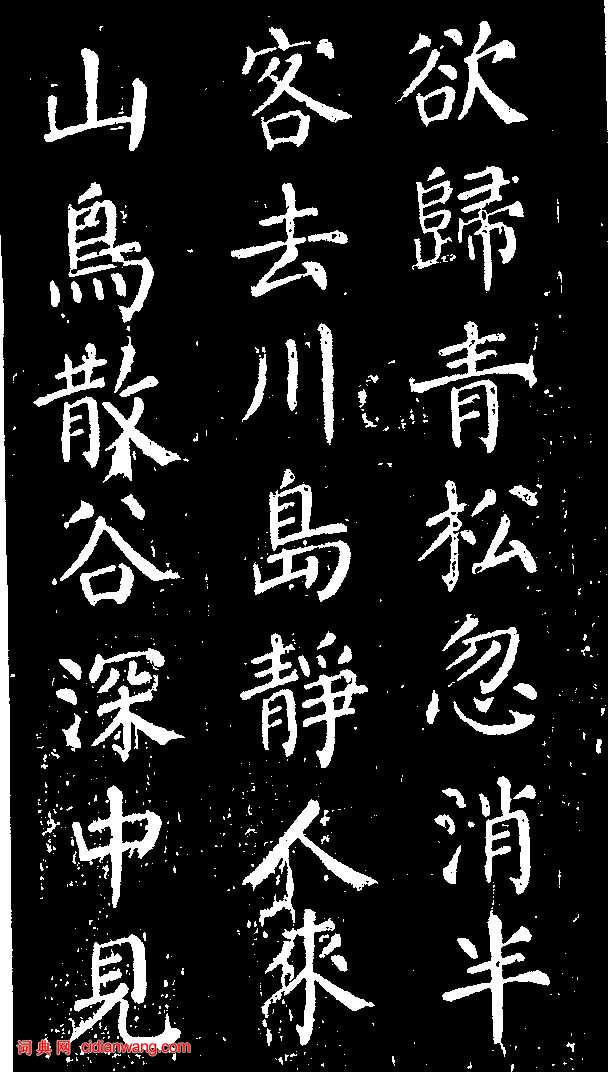 欲歸青松忽消半
客去川島靜人來
山鳥散谷深中見
词典网 cidianwang.com